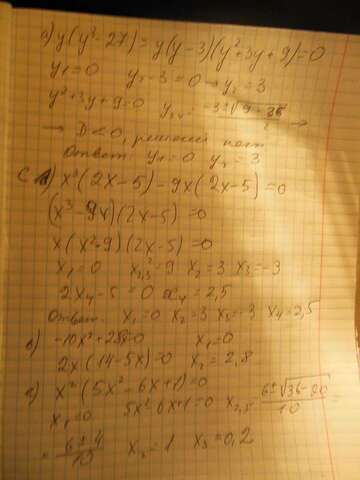 а) y(y³-27)=y(y-3)(y²+3y+9)=0
y₁=0 y-3=0 → y₂=3
y²+3y+9=0 y₃,₄= -3±√9-36 / 2 →
→ D<0, решений нет
Ответ y₁=0 y₂=3
x³(2x-5)-9x(2x-5)=0
(x³-9x)(2x-5)=0
x(x²+9)(2x-5)=0
x₁=0 x²₂,₃=9 x₂=3 x₃=-3
2x₄-5=0 x₄=2,5
Ответ. x₁=0 x₂=3 x₃=-3 x₄=2,5
в) -10x²+28x=0 x₁=0
2x(14-5x)=0 x₂=2,8
x²(5x²-6x+1)=0
x₁=0 5x²-6x+1=0 x₂,₃= 6±√36-20 / 10 =
= 6±4 / 10 x₂=1 x₃=0,2